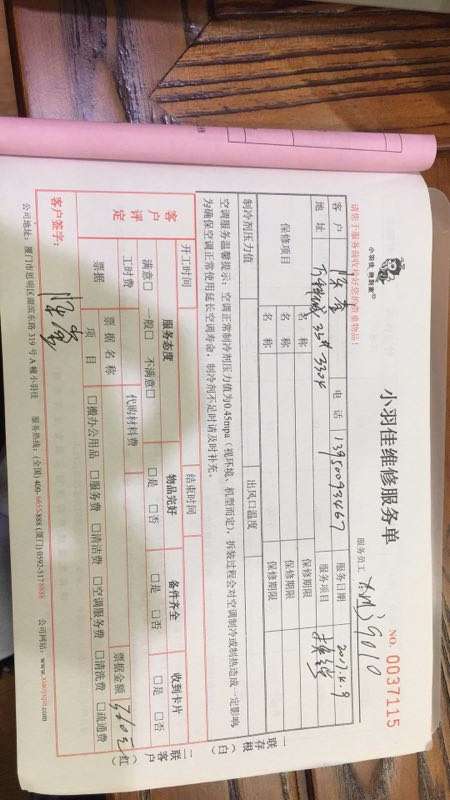 请您于服务前收检好您的贵重物品!
小羽佳 做到家
小羽佳维修服务单
NO. 0037115
服务员工
客户 电话 13950093467 服务日期 2017.4.9
地址 服务项目
保修项目 名称 保修期限
名称 保修期限
名称 保修期限
制冷剂压力值 出风口温度
空调服务温馨提示:空调正常制冷剂压力值为0.45mpa(视环境、机型而定),拆装过程会对空调制冷或制热造成一定影响
为确保空调正常使用延长空调寿命,制冷剂不足时请及时补充。
客户评定
开工时间 结束时间
服务态度 物品完好 备件齐全 收到卡片
满意□ 一般□ 不满意□ □是 □否 □是 □否 □是 □否
工时费 代购材料费 票据金额
票据 票据名称
项目 □搬办公用品 □服务费 □清洁费 □空调服务费 □清洗费 □疏通费
客户签字:
公司地址:厦门市思明区湖滨东路319号A幢小羽佳 服务热线:(全国)400- (厦门)0592-
公司网站:www.xiaoyujia.com
一联存根(白)
二联客户(红)